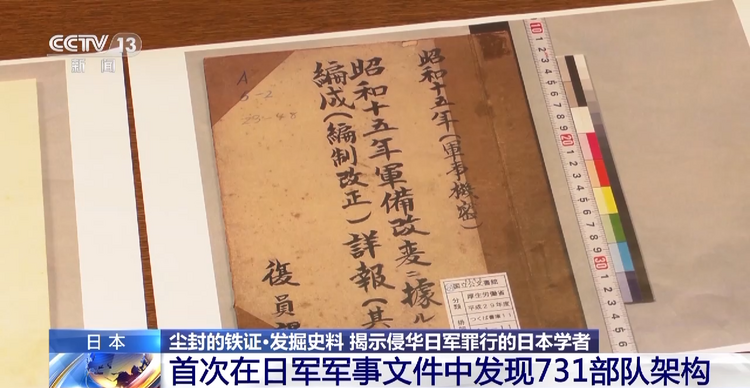 CCTV 13
新闻
昭和十五年(軍事機密)
昭和十五年軍備改変ニ據ル
編成(編制改正)詳報(其
復員
A
国立公文書館
分類
厚生労働省
平成29年度
日本
尘封的铁证·发掘史料 揭示侵华日军罪行的日本学者
首次在日军军事文件中发现731部队架构